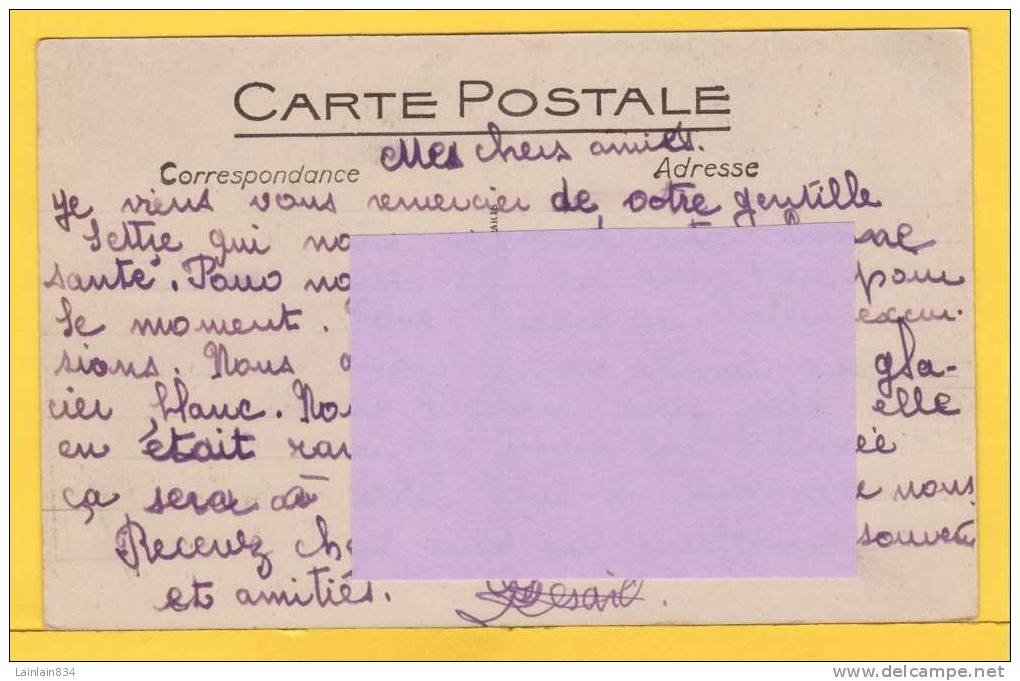 CARTE POSTALE
Mes chers amies.
Correspondance
Adresse
PARIS
Je viens vous remercier de votre gentille
lettre qui
santé. Pour pour
le moment. excur-
sions. Nous gla-
cier blanc. elle
en était
ça sera à nous
Recevez
et amitiés.
Lainlain834
www.delcampe.net